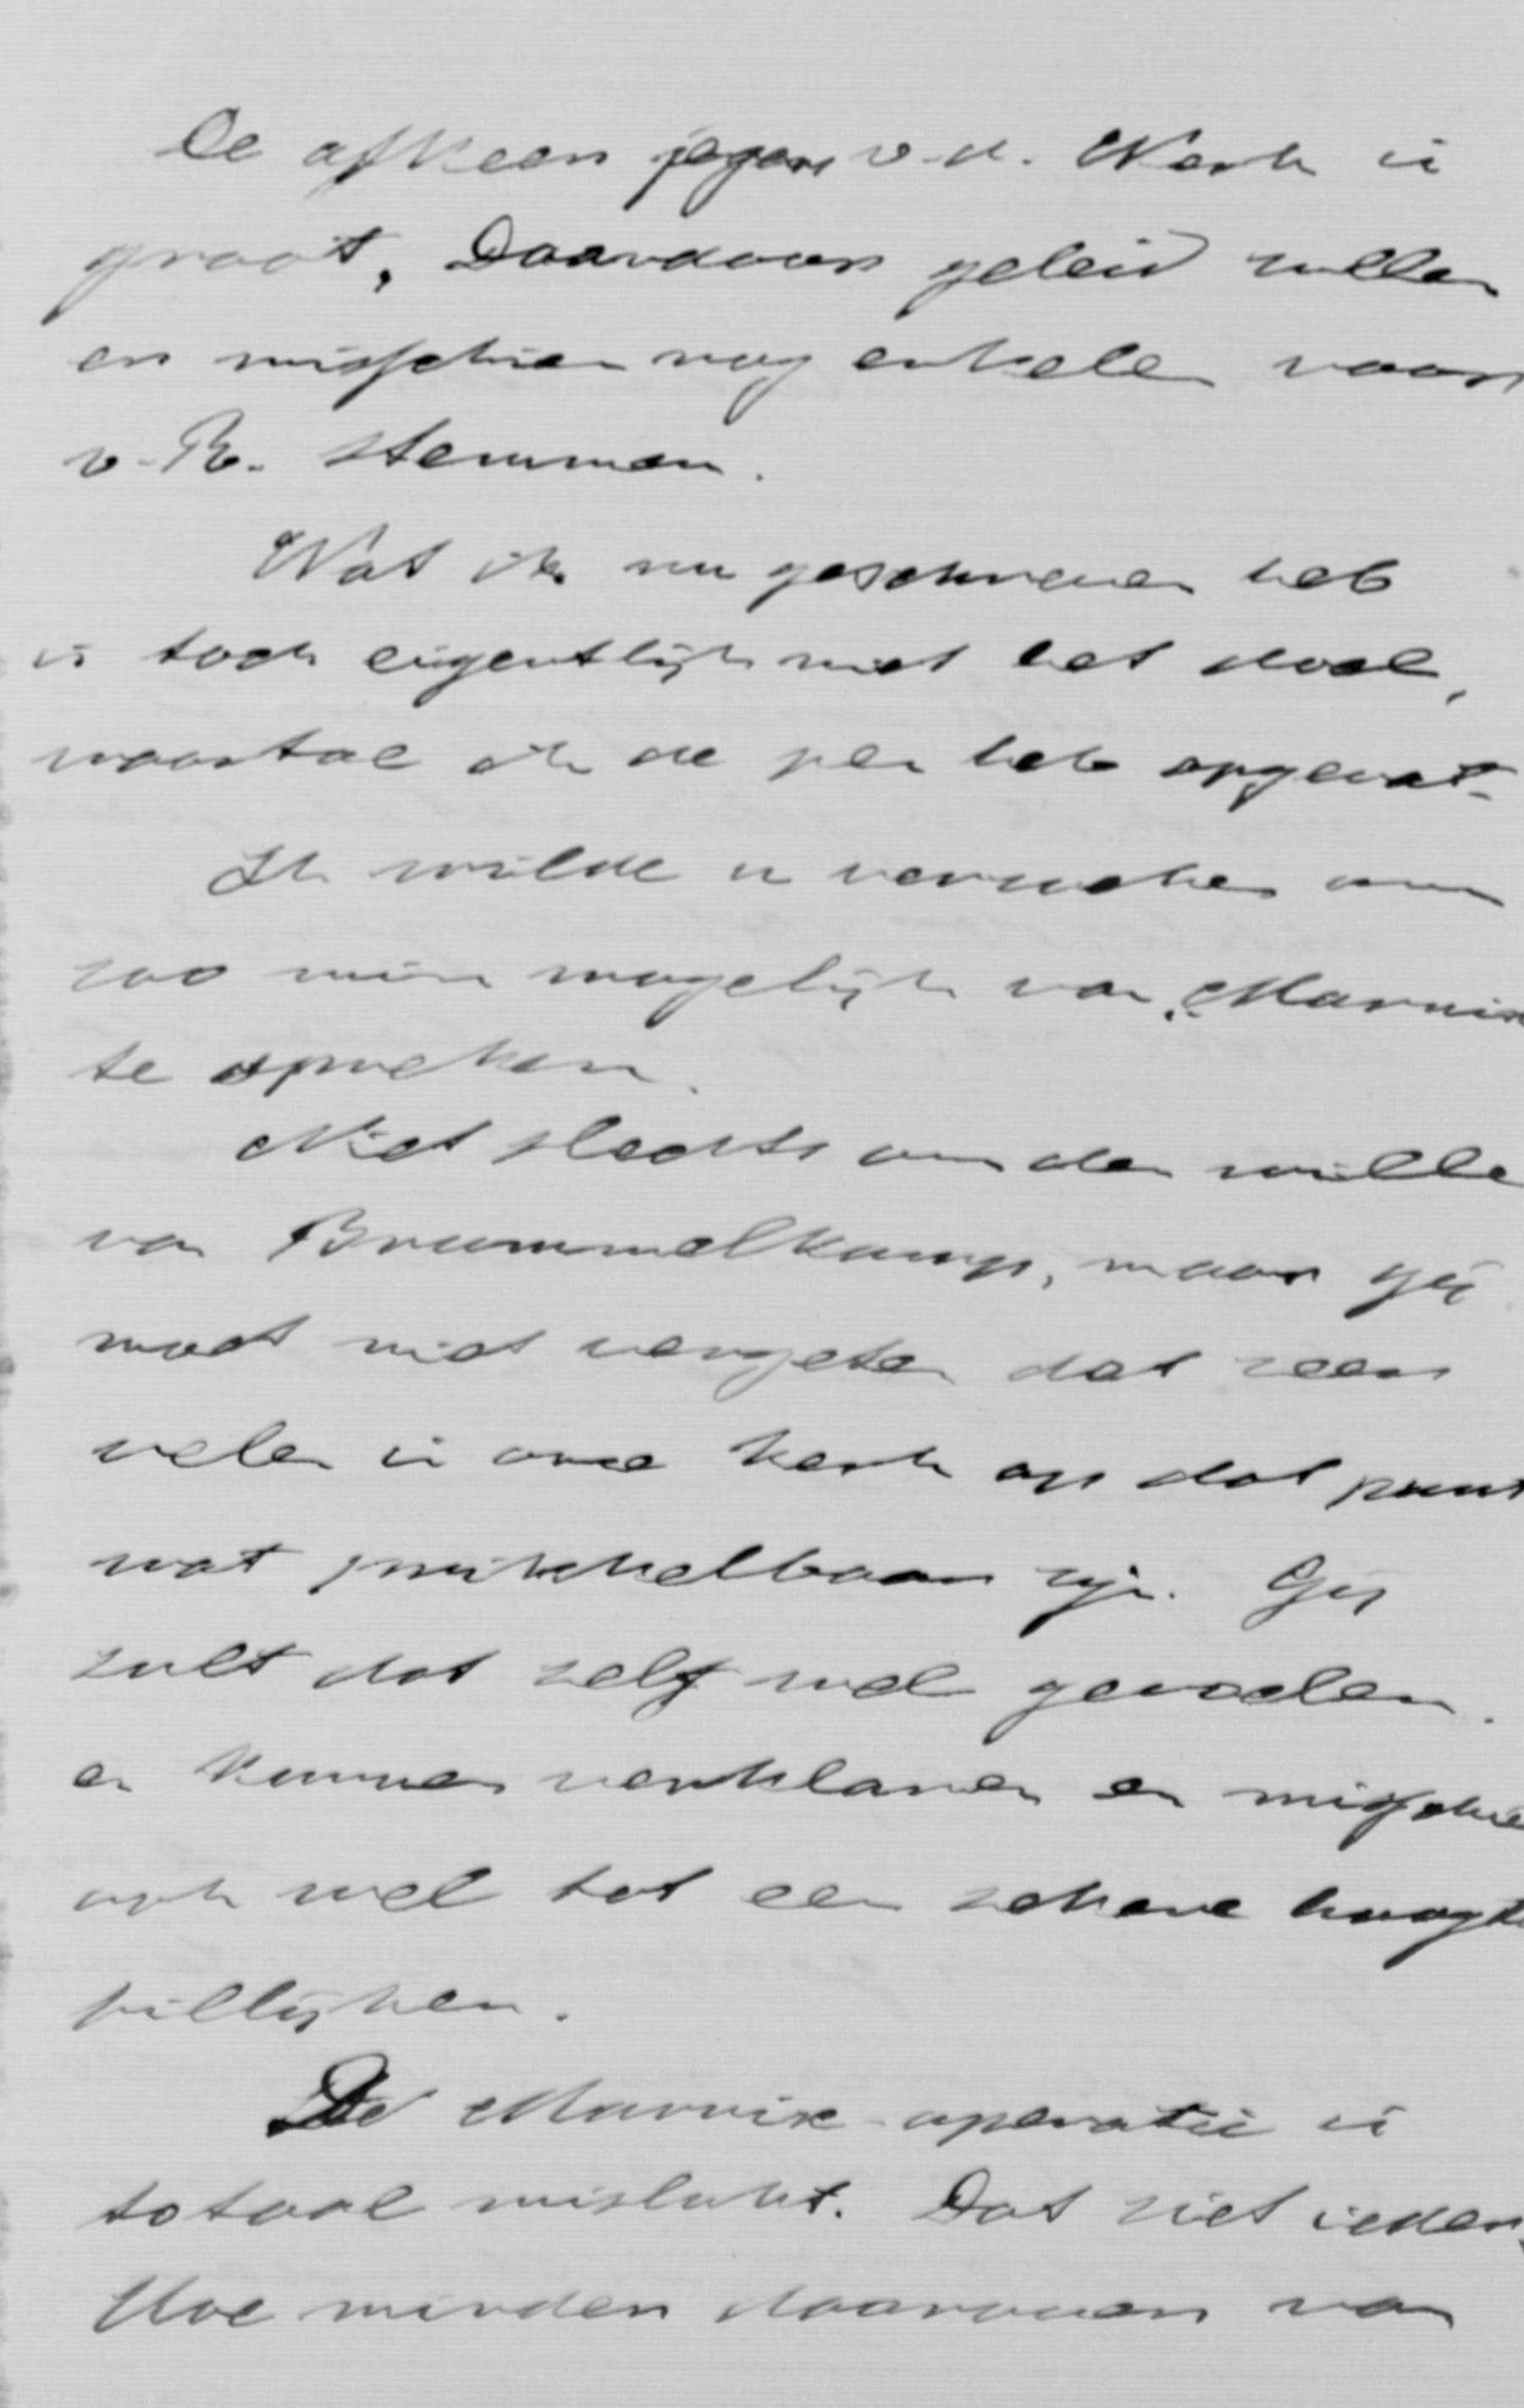 De afkeer jegens v.d. Werk is
groot. Daardoor geleid zullen
er misschien nog enkelen voor
v. R. stemmen.
Wat ik nu geschreven heb
is toch eigentlijk niet het doel,
waartoe ik de pen heb opgevat.
Ik wilde u verzoeken om
zoo min mogelijk van "Marnix
te spreken.
Niet slechts om der wille
van Brummelkamp, maar gij
moet niet vergeten dat zeer
velen in onze kerk op dat punt
wat prikkelbaar zijn. Gij
zult dat zelf wel gevoelen.
en kunnen verklaren en misschie
ook wel tot een zekere hoogte
billijken.
De Marnix-operatie is
totaal mislukt. Dat ziet ieder.
Hoe minder daarover van